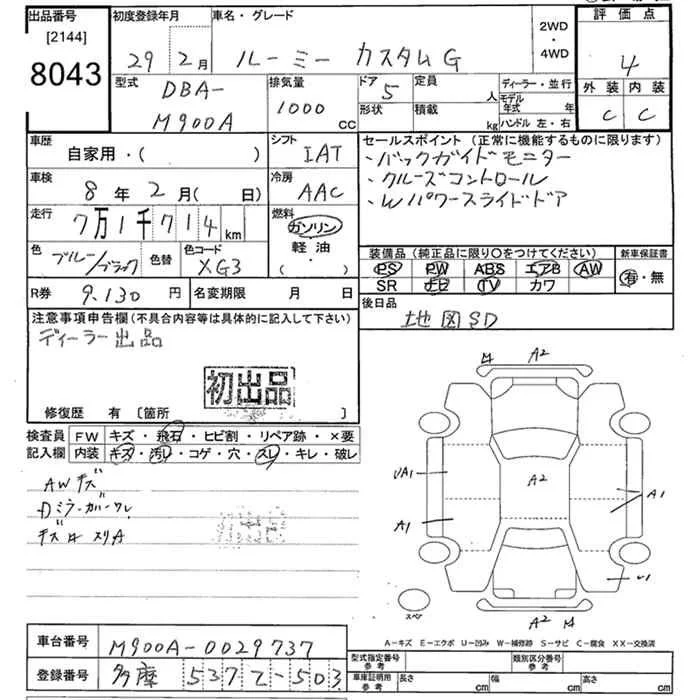 出品番号
[2144]
8043
初度登録年月
29 2月
車名・グレード
ルーミー カスタムG
2WD
・
4WD
評価点
4
外装 内装
C C
型式
DBA-
M900A
排気量
1000
cc
ドア
5
形状
定員
人
積載
kg
ディーラー・並行
モデル年式 年
ハンドル 左・右
車歴
自家用・( )
シフト
IAT
車検
8年2月( 日)
冷房
AAC
走行
7万1千714km
燃料
ガソリン
軽油
・( )
色
ブルー/ブラック
色替
色コード
XG3
R券
9,130円
名変期限 月 日
セールスポイント(正常に機能するものに限ります)
・バックガイドモニター
・クルーズコントロール
・Wパワースライドドア
装備品(純正品に限り〇をつけてください)
PS PW ABS エアB AW
SR ナビ TV カワ
新車保証書
有・無
後日品
地図SD
注意事項申告欄(不具合内容等は具体的に記入して下さい)
ディーラー出品
初出品
修復歴 有 [箇所 ]
検査員
記入欄
FW キズ・飛石・ヒビ割・リペア跡・×要
内装 キズ・汚レ・コゲ・穴・スレ・キレ・破レ
AWキズ
A2
A2
UA1
A1
A1
U1
A2
スペア
A-キズ E-エクボ U-凹み W-補修跡 S-サビ C-腐食 XX-交換済
車台番号
M900A-0029737
登録番号
多摩 537 て-503
型式指定番号
参考
類別区分番号
参考
車庫証明用
参考
長さ cm
幅 cm
高さ cm